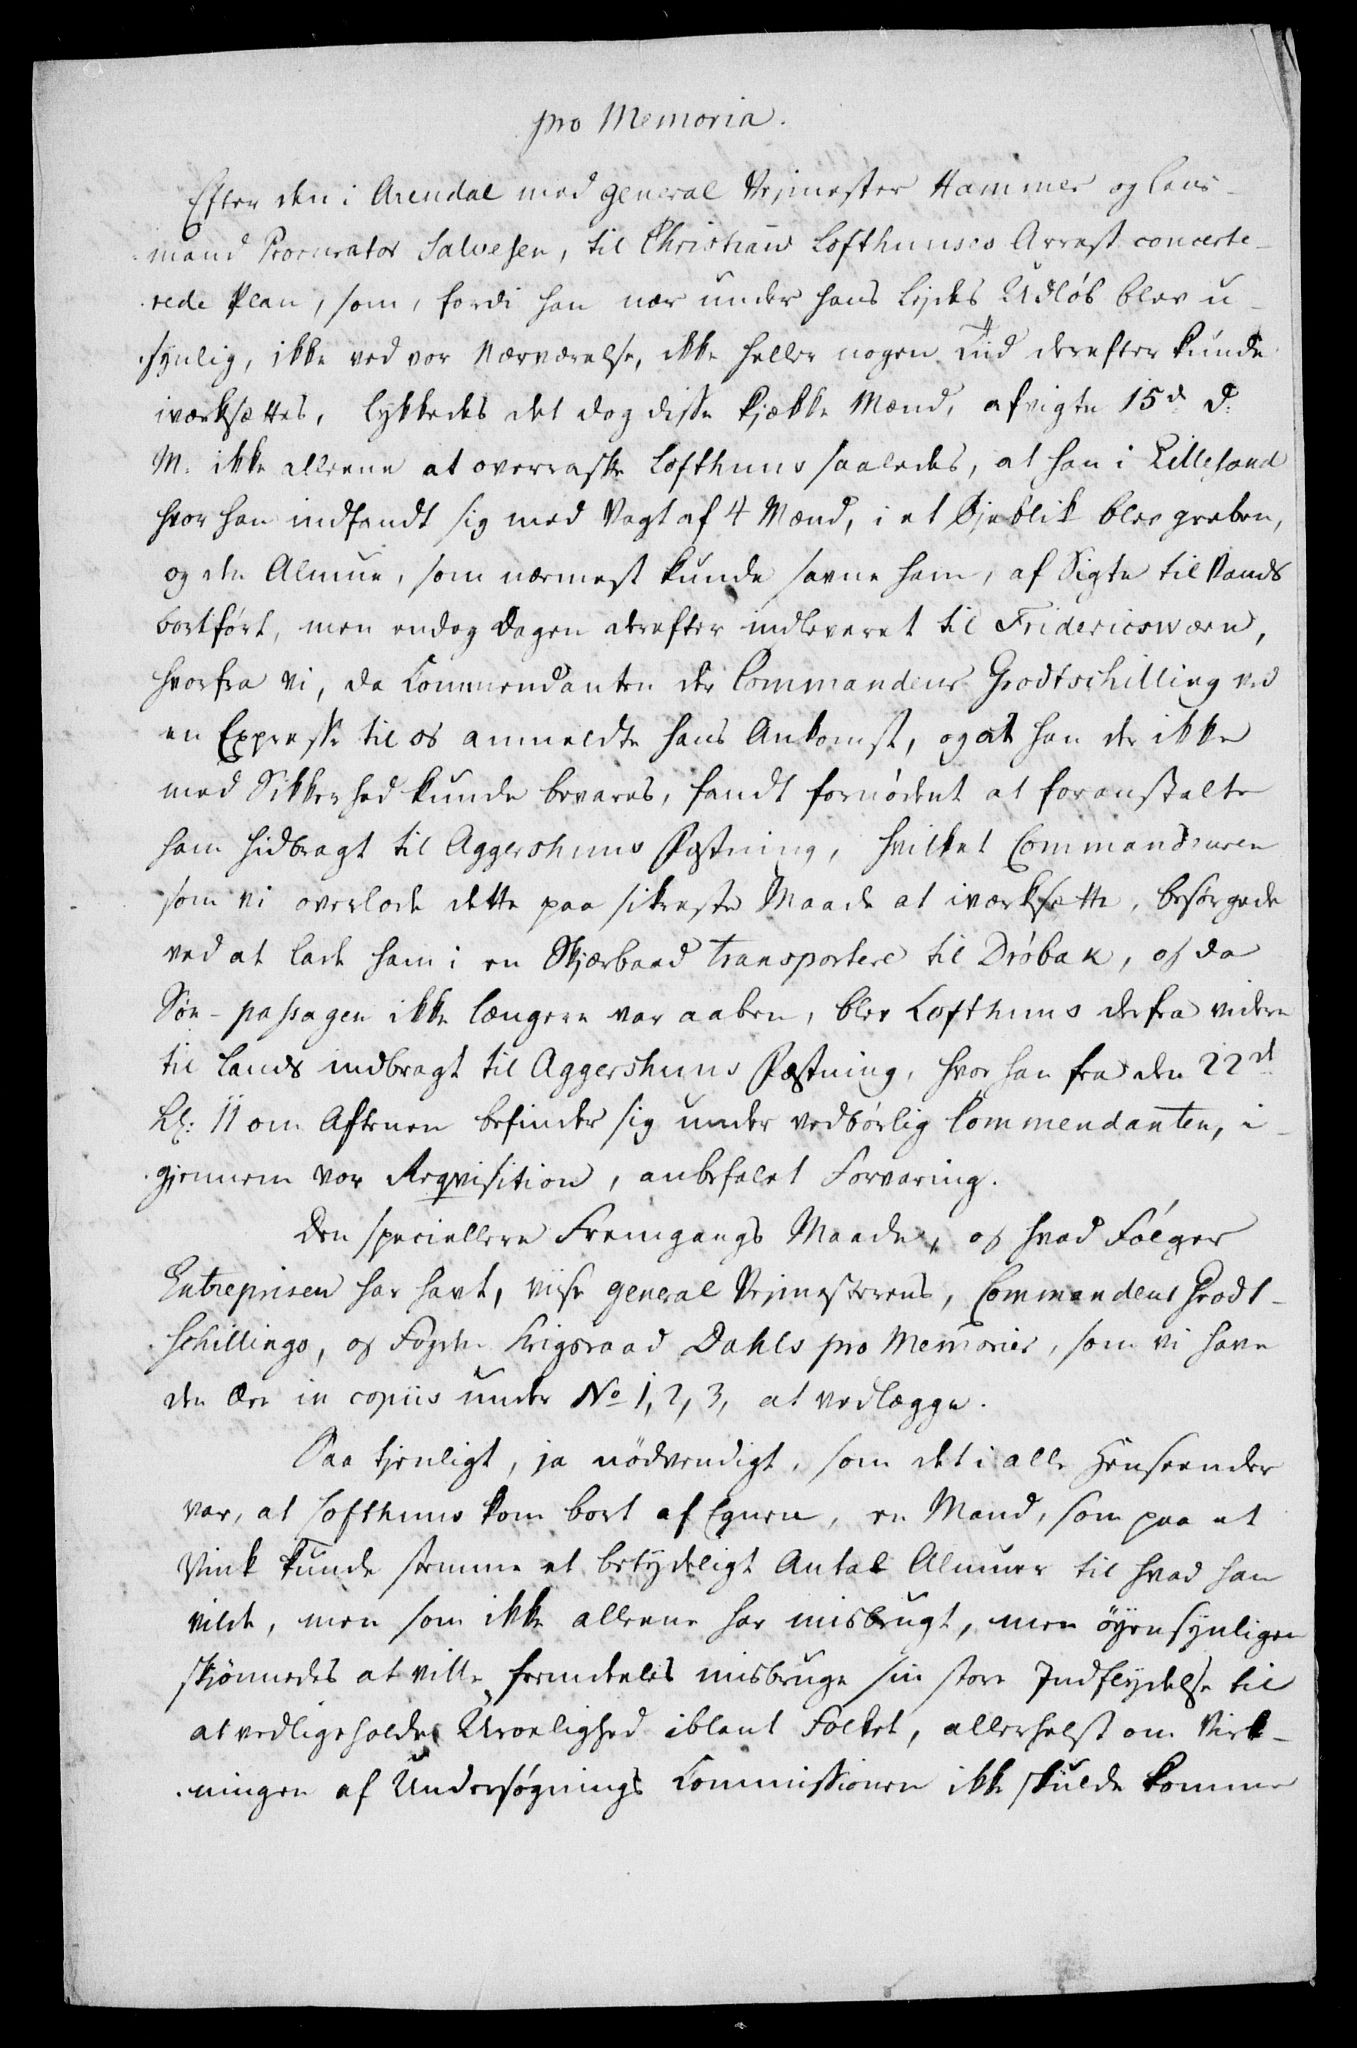 pro Memoria.
Efter den i Arendal med General Vejmester Hammer og Lens-
mand Procurator Salvesen, til Christian Lofthuuses Arrest concerte-
rede Plan, som, fordi han nær under hans Lejdes Udløb blev u-
synlig, ikke ved vor Nærværelse, ikke heller nogen Tid derefter kunde
iværksættes, lykkedes det dog disse kjække Mænd, afvigte 15de d:
M: ikke alleene at overraske Lofthuus saaledes, at han i Lillesand
hvor han indfandt sig med Vagt af 4 Mænd, i et Øjeblik blev greben,
og den Almue, som nærmest kunde savne ham, af Sigte til Vands
bortført, men endog Dagen derefter indleveret til Fridericsværn,
hvorfra vi, da Commendanten der Commandeur Grodtschilling ved
en Expresse til os anmeldte hans Ankomst, og at han der ikke
med Sikkerhed kunde bevares, fandt fornødent at foranstalte
ham hidbragt til Aggershuus Fæstning, hvilket Commandeuren
som vi overlode dette paa sikreste Maade at iværksætte, besørgede
ved at lade ham i en Skjærbaad transportere til Drøbak, og da
Søe-passagen ikke længere var aaben, blev Lofthuus derfra videre
til Lands indbragt til Aggershuus Fæstning, hvor han fra den 22de
Kl: 11 om Aftenen befinder sig under vedbørlig Commendanten, i-
gjennem vor Reqvisition, anbefalet Forvaring.
Den speciellere Fremgangs Maade, og hvad Følger
Entreprisen har havt, viise General Vejmesterens, Commandeur Grodt-
schillings, og Fogden Krigsraad Dahls pro Memorier, som vi have
den Ære in copiis under No 1, 2, 3, at vedlægge.
Saa tjenligt, ja nødvendigt, som det i alle Henseender
var, at Lofthuus kom bort af Egnen, en Mand, som paa et
Vink kunde stemme et betydeligt Antal Almuer til hvad han
vilde, men som ikke alleene har misbrugt, men øyensynligen
skjønnedes at ville fremdeles misbruge sin store Indflydelse til
at vedligeholde Uroelighed iblant Folket, allerhelst om Virk-
ningen af Undersøgnings Commissionen ikke skulde komme